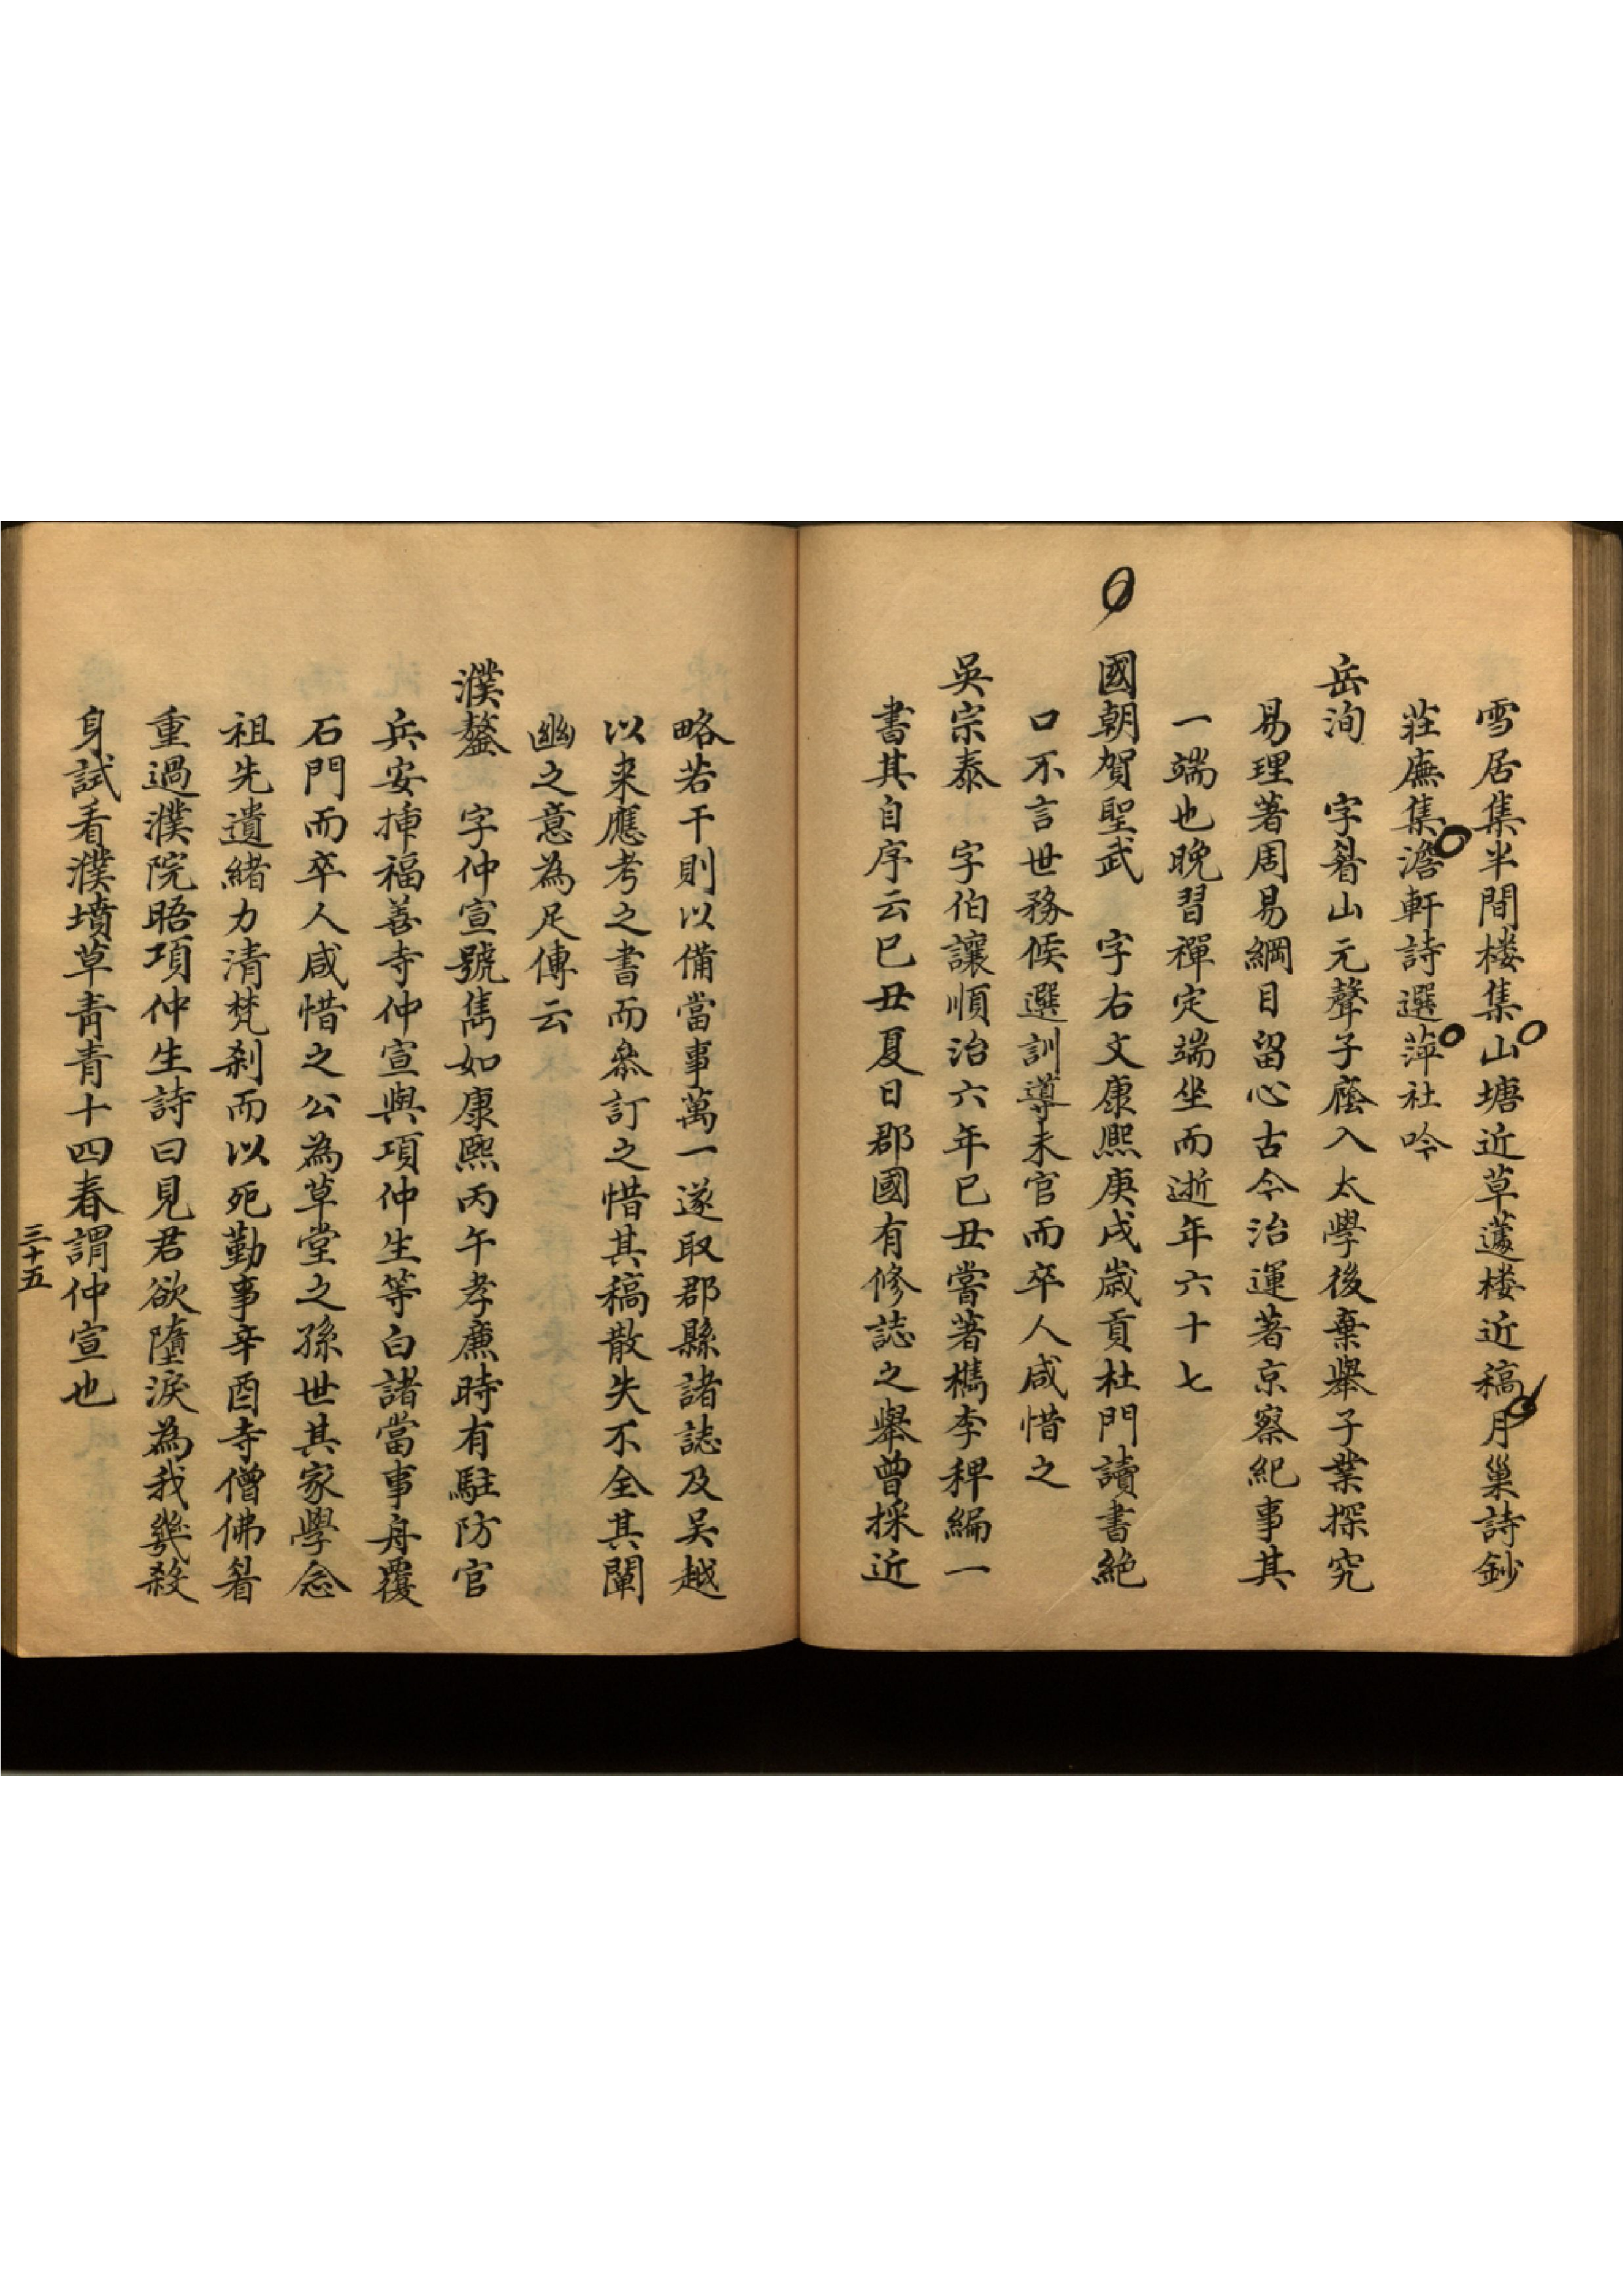 雪居集半間楼集山塘近草蘧楼近稿月巢詩鈔
莊廡集澹軒詩選萍社吟
岳洵　字㫺山元聲子廕入太學後棄舉子業探究
易理著周易綱目留心古今治運著京察紀事其
一端也晚習禪定端坐而逝年六十七
國朝賀聖武　字右文康熙庚戌歲貢杜門讀書絶
口不言世務候選訓導未官而卒人咸惜之
吳宗泰　字伯讓順治六年巳丑嘗著檇李稗編一
書其自序云巳丑夏日郡國有修誌之舉曾採近
略若干則以備當事萬一遂取郡縣諸誌及吴越
以来應考之書而叅訂之惜其稿散失不全其闡
幽之意為足傳云
濮鏊　字仲宣號雋如康熙丙午孝廉時有駐防官
兵安揷福善寺仲宣與項仲生等白諸當事舟覆
石門而卒人咸惜之公為草堂之孫世其家學念
祖先遺緒力清梵刹而以死勤事辛酉寺僧佛㫺
重過濮院晤項仲生詩曰見君欲墮淚為我幾殺
身試看濮墳草青青十四春謂仲宣也
三十五